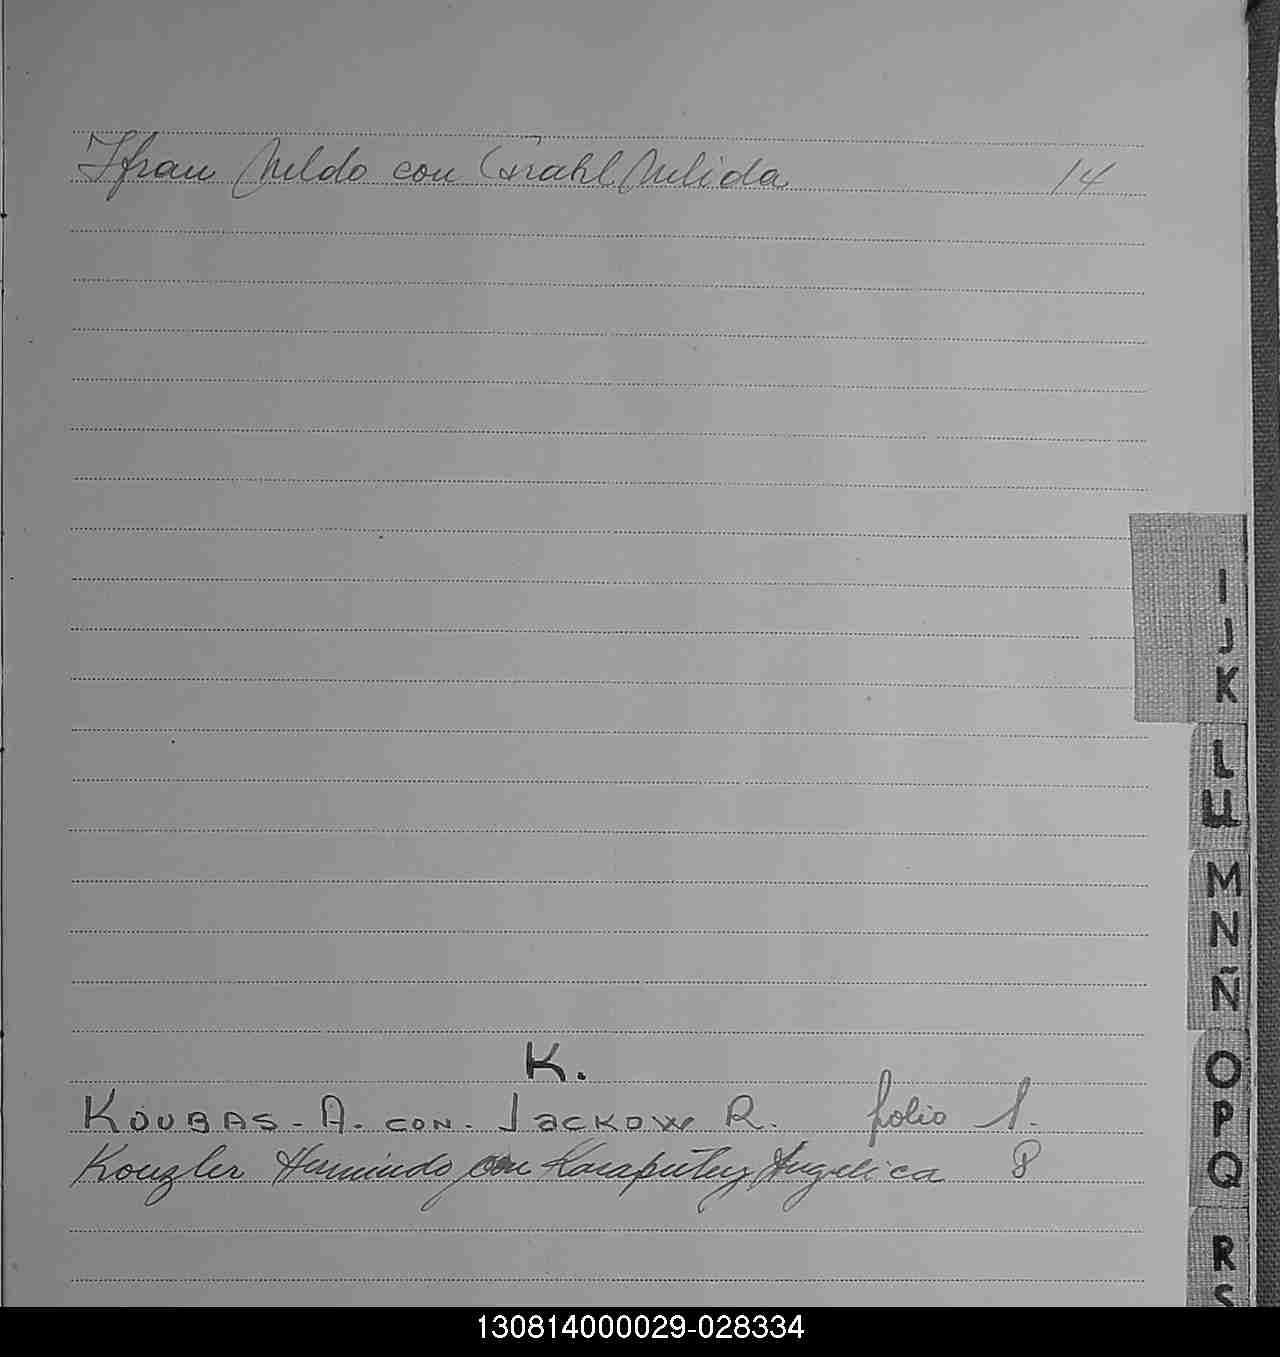 Ifran Nildo con Grahl Nelida 14
K.
KOUBAS - A. CON. JACKOW R. folio 1.
Konzler Hermindo con Angelica 8
I
J
K
L
LL
M
N
Ñ
O
P
Q
R
S
130814000029-028334